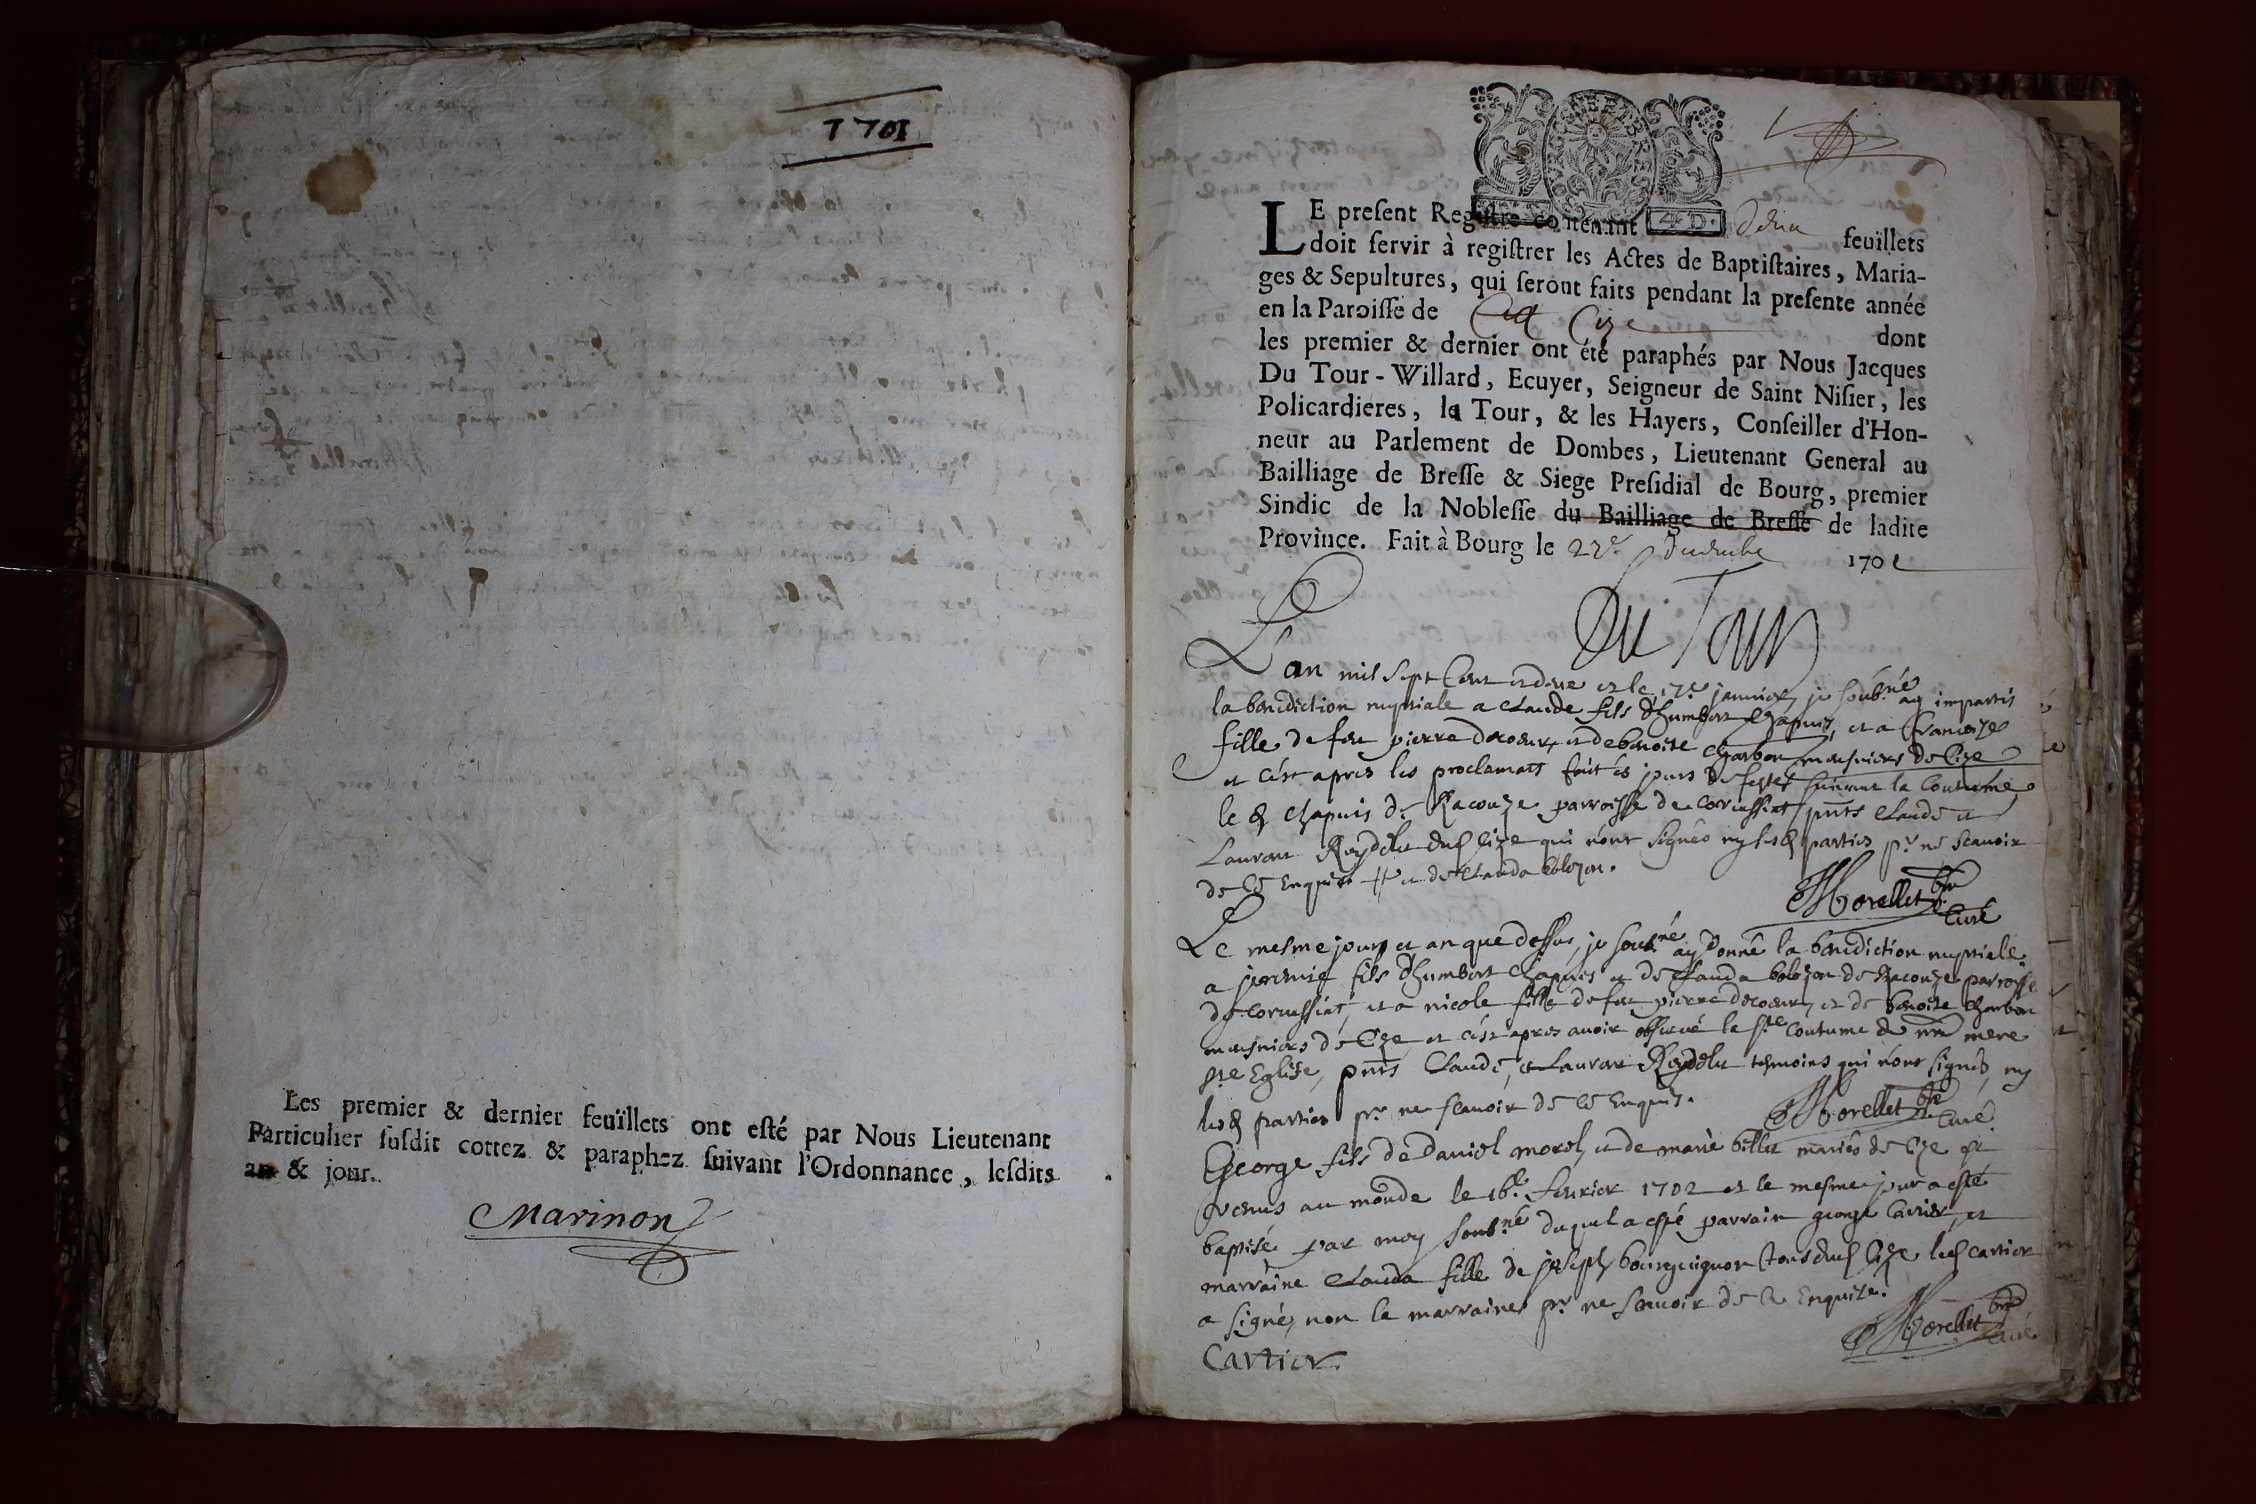 1701
Les premier & dernier feuïllets ont esté par Nous Lieutenant
Particulier susdit cottez & paraphez suivant l'Ordonnance, lesdits
an & jour.
Marinon
GENERALITE
4 D.
LE present Registre contenant feuïllets
doit servir à registrer les Actes de Baptistaires, Maria-
ges & Sepultures, qui seront faits pendant la presente année
en la Paroisse de Cize dont
les premier & dernier ont été paraphés par Nous Jacques
Du Tour-Willard, Ecuyer, Seigneur de Saint Nisier, les
Policardieres, la Tour, & les Hayers, Conseiller d'Hon-
neur au Parlement de Dombes, Lieutenant General au
Bailliage de Bresse & Siege Presidial de Bourg, premier
Sindic de la Noblesse du Bailliage de Bresse de ladite
Province. Fait à Bourg le 22e 1701
Du Tour
L'an mil sept cent et deux et le 17e janvier je soubné ay impartis
la benediction nuptiale a Claude fils d'humbert Chapuis, et a francoize
fille de feu pierre decoeur et de benoite Charbon mausniers de Cize
et c'est apres les proclamats fait és jours de festes suivant la Coutume
le d Chapuis de Racouze parroisse de Corvessiat pnts Claude et
Laurent Reydelet dud Cize qui n'ont signés ny lesd parties pr ne scavoir
de ce Enquis # et de Clauda bolozon.
Morellet bre
Curé
Le mesme jour et an que dessus, je soubné ay donné la benediction nuptiale
a jeremie fils d'humbert Chapuis et de Clauda bolozon de Racouze parroisse
de Corvessiat, et a nicole fille de feu pierre decoeur, et de benoite Charbon
mausniers de Cize, et c'est apres avoir observé la ste Coutume de nre mere
ste Eglise, pnts Claude, et Laurent Reydelet tesmoins qui n'ont signés, ny
lesd parties pr ne scavoir de ce Enquis.
Morellet bre
Curé.
George fils de Daniel morel, et de marie billet mariés de Cize est
venus au monde le 16e fevrier 1702 et le mesme jour a esté
baptisé par moy soubné duquel a esté parrain george Cartier, et
marraine Clauda fille de joseph bourguignon tous dud Cize led cartier
a signé, non la marraine pr ne scavoir de ce Enquize.
Morellet bre
Curé
Cartier.